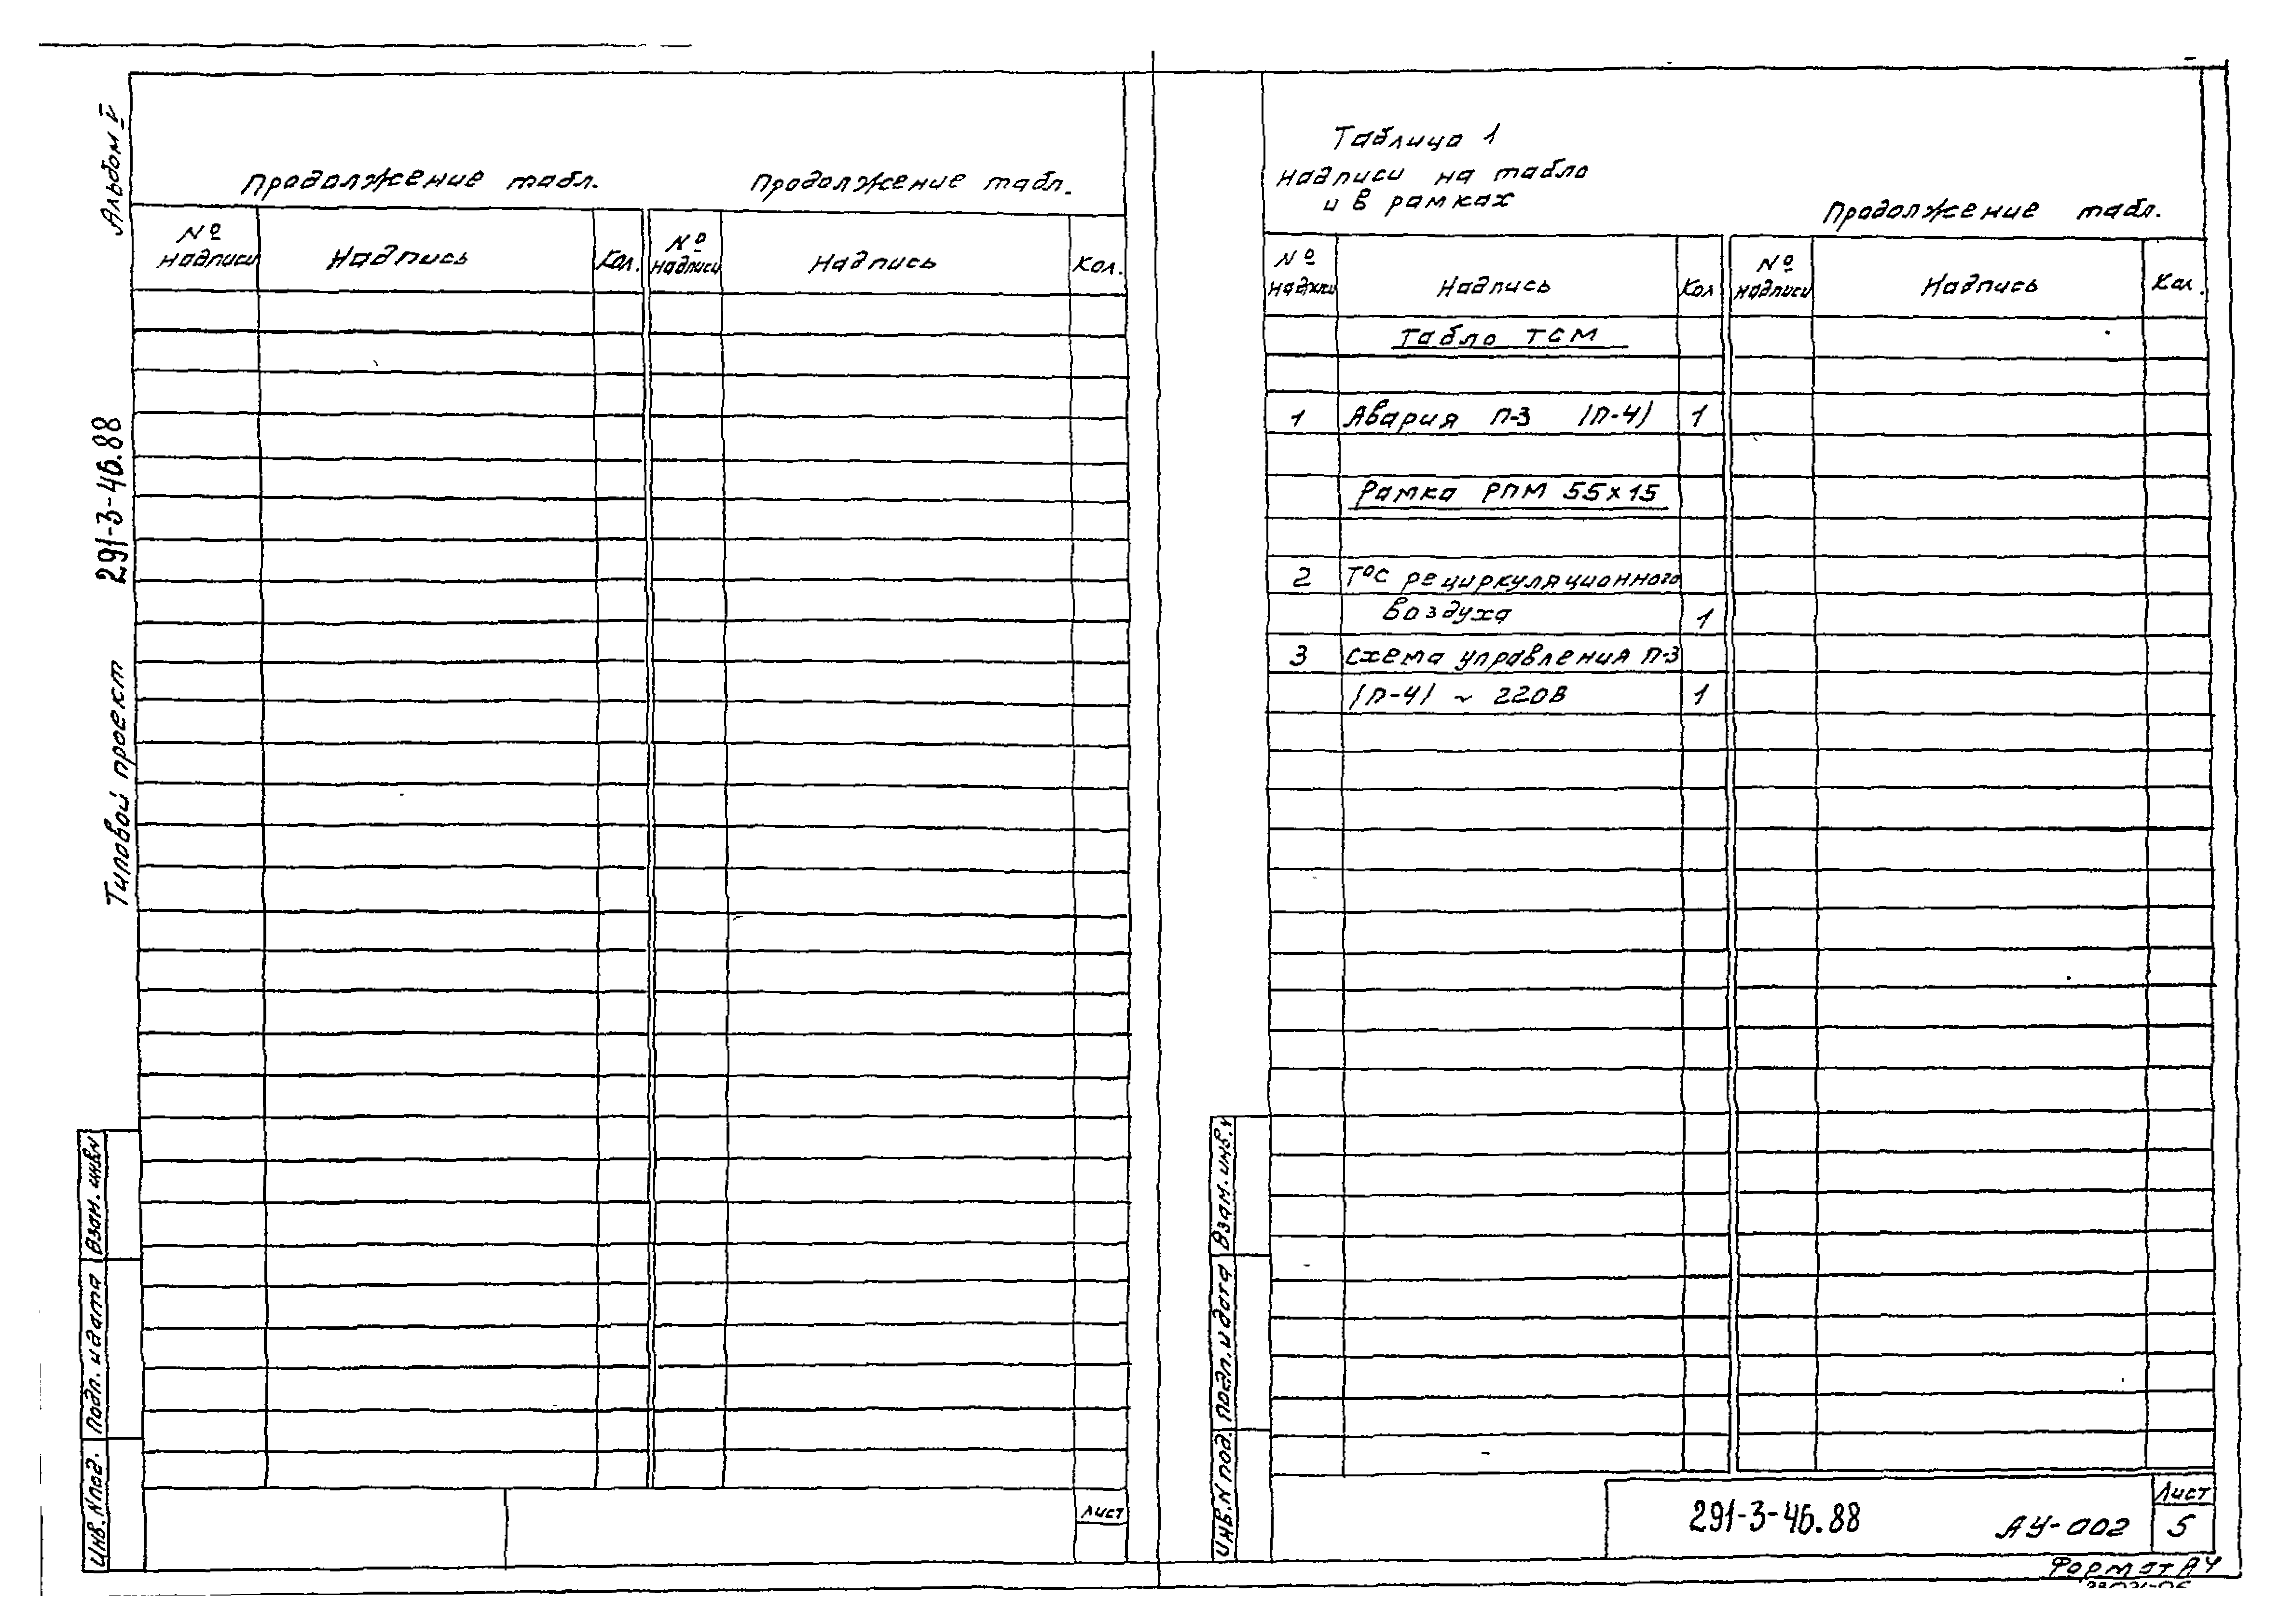 Альбом V
Типовой проект 291-3-46.88
Продолжение табл.
№ надписи Надпись Кол.
Продолжение табл.
№ надписи Надпись Кол.
Взам. инв.N
Подп. и дата
Инв. N под.
Лист
Таблица 1
Надписи на табло
и в рамках
№ надписи Надпись Кол
Табло ТСМ
1 Авария П-3 (П-4) 1
Рамка РПМ 55х15
2 Т°С рециркуляционного
воздуха 1
3 Схема управления П-3
(П-4) ~ 220В 1
Продолжение табл.
№ надписи Надпись Кол.
Взам. инв.N
Подп. и дата
Инв. N под.
291-3-46.88 АУ-002
Лист
5
Формат А4